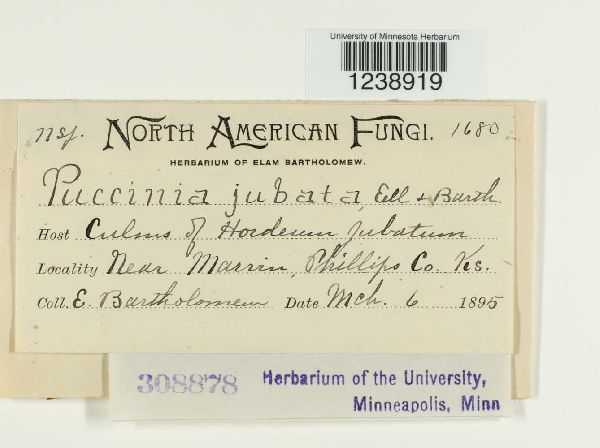 University of Minnesota Herbarium
1238919
nsf. NORTH AMERICAN FUNGI. 1680
HERBARIUM OF ELAM BARTHOLOMEW.
Puccinia jubata Ell & Barth
Host Culms of Hordeum jubatum
Locality Near Marvin, Phillips Co. Ks.
Coll. E. Bartholomew Date Mch. 6 1895
308878 Herbarium of the University,
Minneapolis, Minn